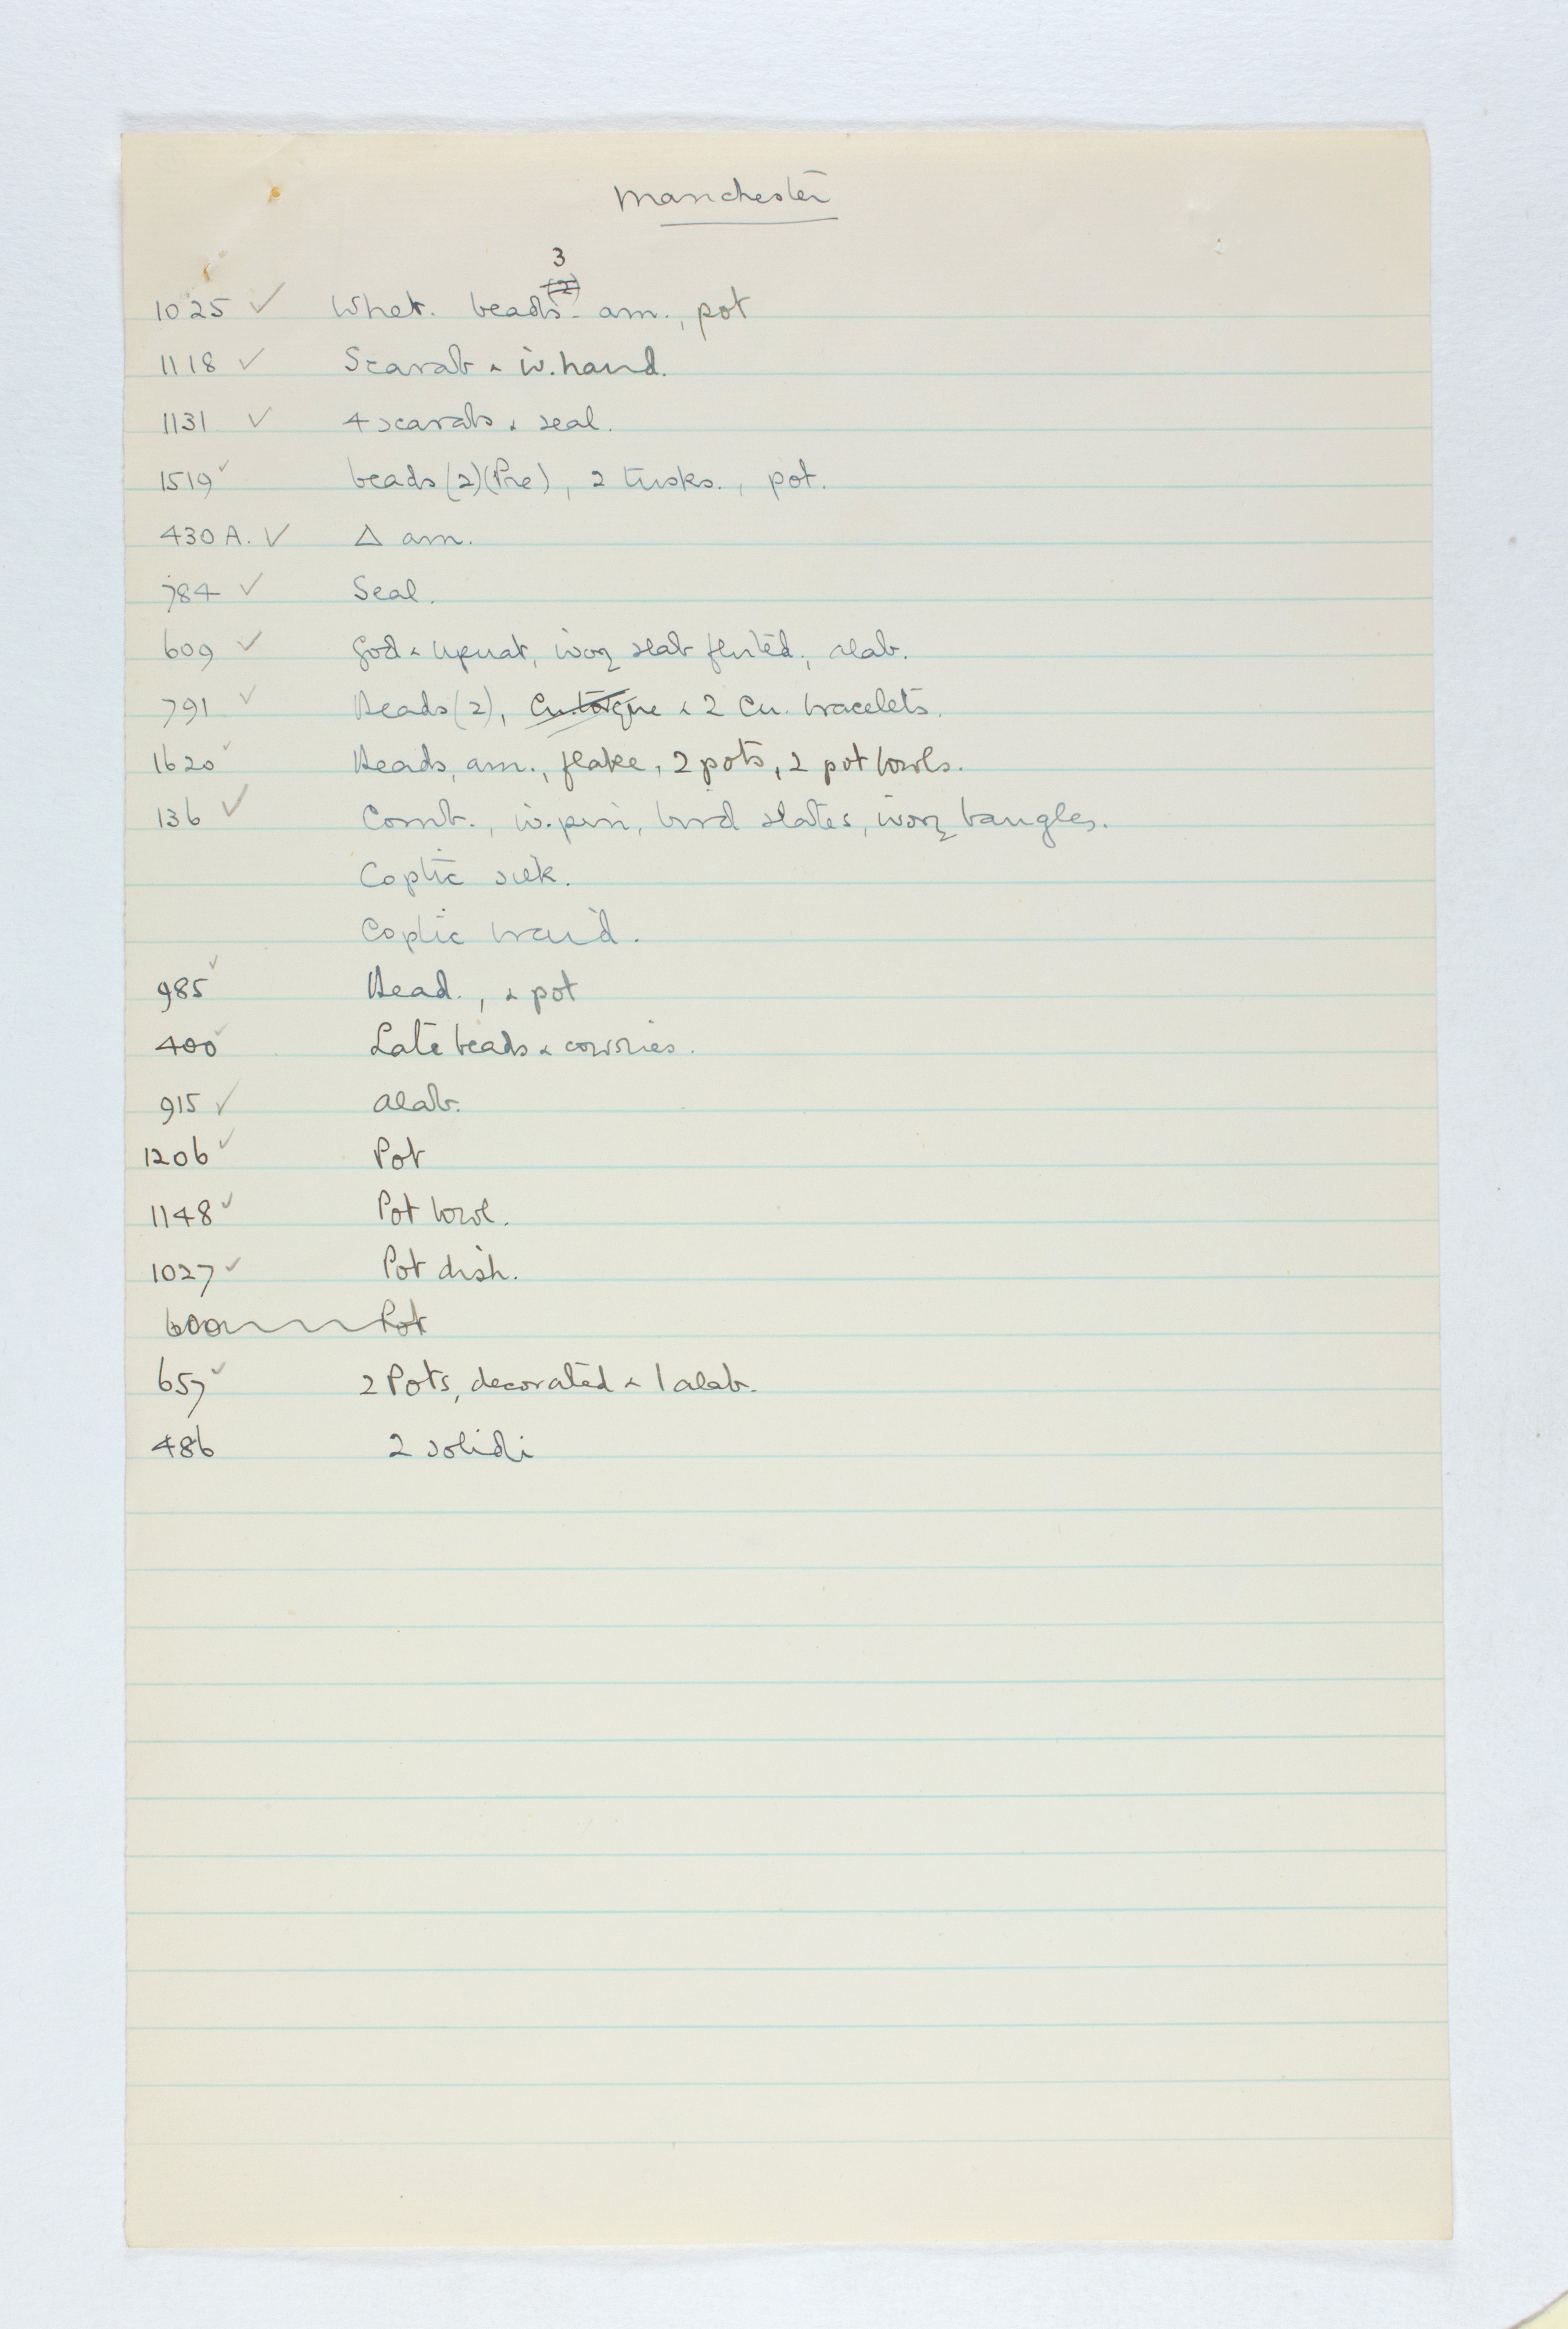 Manchester
3
1025 ✓ Whet. beads (2) - am., pot
1118 ✓ Scarab & iv. hand.
1131 ✓ 4 scarabs & seal.
1519 ✓ beads (2) (Pre), 2 tusks., pot.
430 A. ✓ △ am.
784 ✓ Seal.
609 ✓ God & Upuat, ivory slab fluted, alab.
791 ✓ Beads (2), Cu. torque & 2 Cu. bracelets.
1620 ✓ Beads, am., flake, 2 pots, 2 pot bowls.
136 ✓ Comb., iv. pin, bird slates, ivory bangles.
Coptic silk.
Coptic braid.
985 ✓ Bead., & pot
400 ✓ Late beads & cowries.
915 ✓ alab.
1206 ✓ Pot
1148 ✓ Pot bowl.
1027 ✓ Pot dish.
600 Pot
657 ✓ 2 Pots, decorated & 1 alab.
486 2 solidi